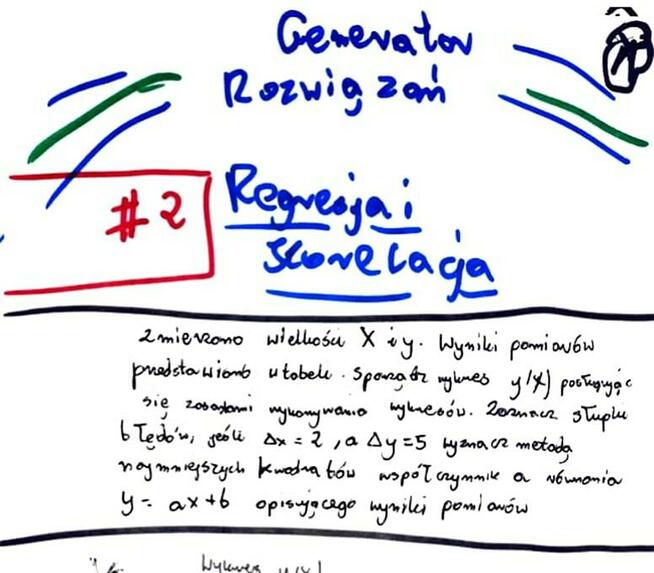 Generator
Rozwiązań
#2
Regresja i
korelacja
Zmierzono wielkości X i y. Wyniki pomiarów
przedstawiono w tabeli. Sporządź wykres y(X) posługując
się zasadami wykonywania wykresów. Zaznacz słupki
błędów, jeśli Δx = 2, a Δy = 5 wyznacz metodą
najmniejszych kwadratów współczynnik a równania
y = ax + b opisującego wyniki pomiarów
Wykres y(X)